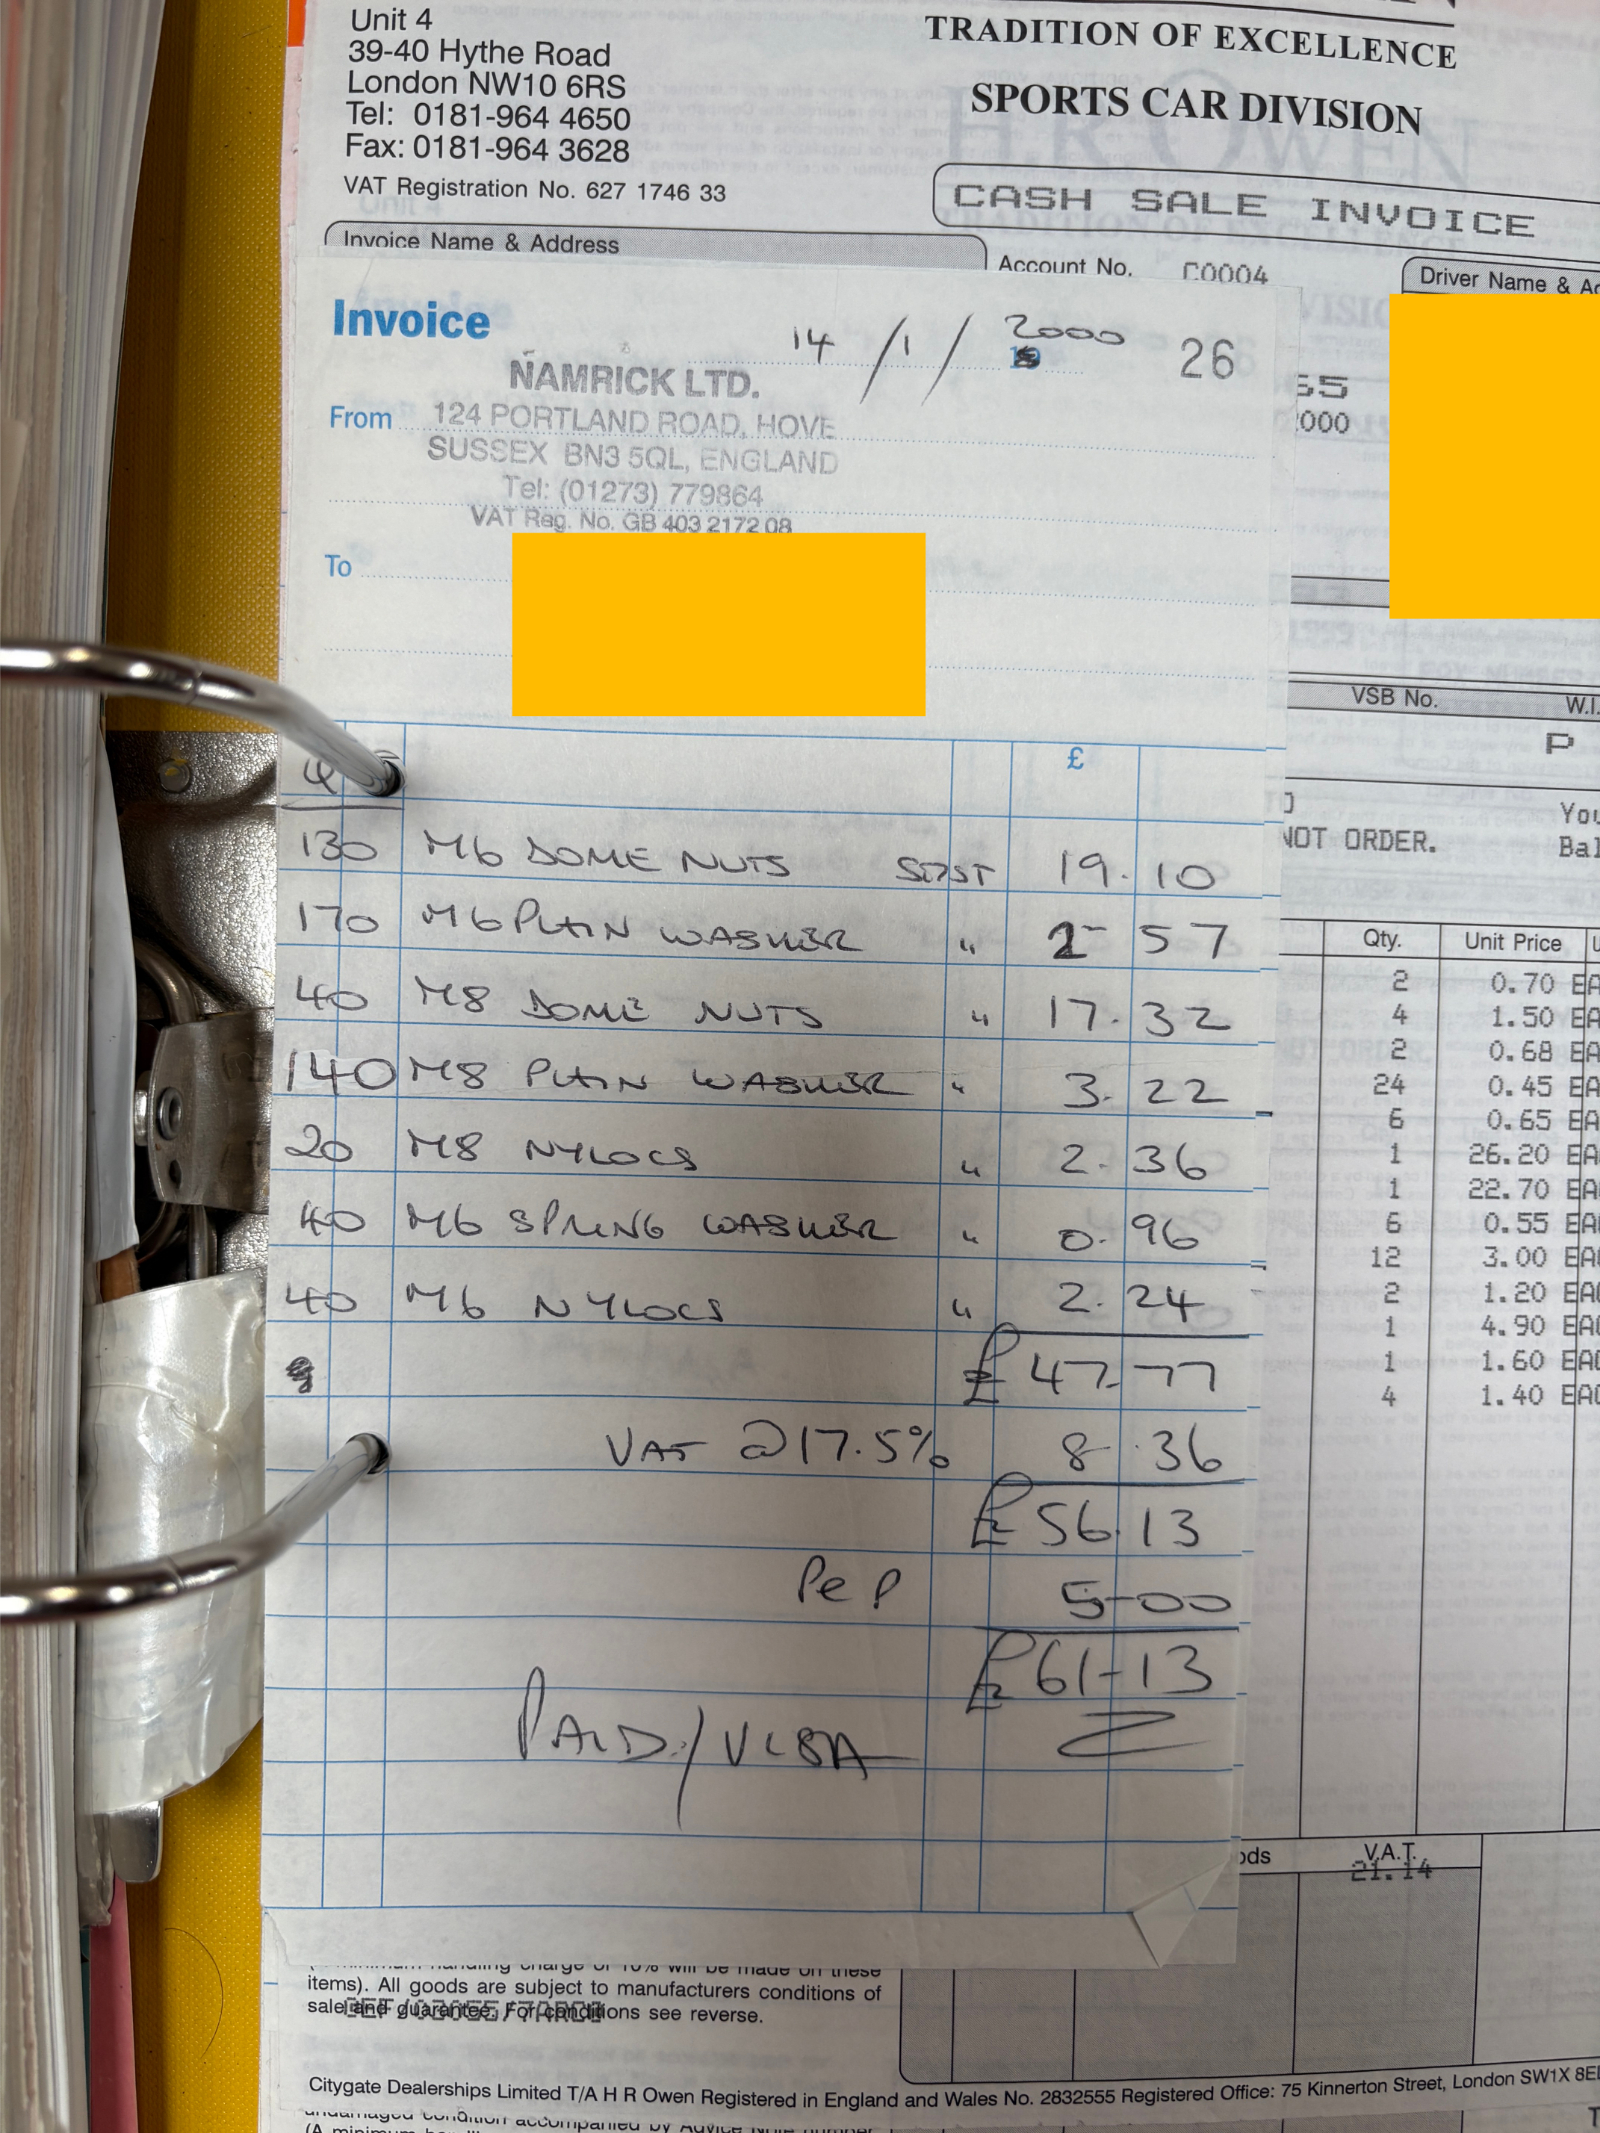 Unit 4
39-40 Hythe Road
London NW10 6RS
Tel: 0181-964 4650
Fax: 0181-964 3628
VAT Registration No. 627 1746 33
TRADITION OF EXCELLENCE
SPORTS CAR DIVISION
CASH SALE INVOICE
Invoice Name & Address
Account No. C0004
Driver Name &
Invoice
14/1/2000 26
NAMRICK LTD.
From 124 PORTLAND ROAD, HOVE
SUSSEX BN3 5QL, ENGLAND
Tel: (01273) 779864
VAT Reg. No. GB 403 2172 08
To
£
130 M6 DOME NUTS SDST 19.10
170 M6 PLAIN WASHER " 2-57
40 M8 DOME NUTS " 17.32
140 M8 PLAIN WASHER " 3.22
20 M8 NYLOCS " 2.36
40 M6 SPRING WASHER " 0.96
40 M6 NYLOCS " 2.24
£47.77
VAT @ 17.5% 8.36
£56.13
P&P 5-00
£61-13
PAID./VISA
55
000
VSB No. W.I.
P
NOT ORDER.
Qty. Unit Price
2 0.70 EA
4 1.50 EA
2 0.68 EA
24 0.45 EA
6 0.65 EA
1 26.20 EA
1 22.70 EA
6 0.55 EA
12 3.00 EA
2 1.20 EA
1 4.90 EA
1 1.60 EA
4 1.40 EA
V.A.T.
21.14
handling charge of 10% will be made on these
items). All goods are subject to manufacturers conditions of
sale and guarantee. For conditions see reverse.
Citygate Dealerships Limited T/A H R Owen Registered in England and Wales No. 2832555 Registered Office: 75 Kinnerton Street, London SW1X 8E
undamaged condition accompanied by Advice Note number